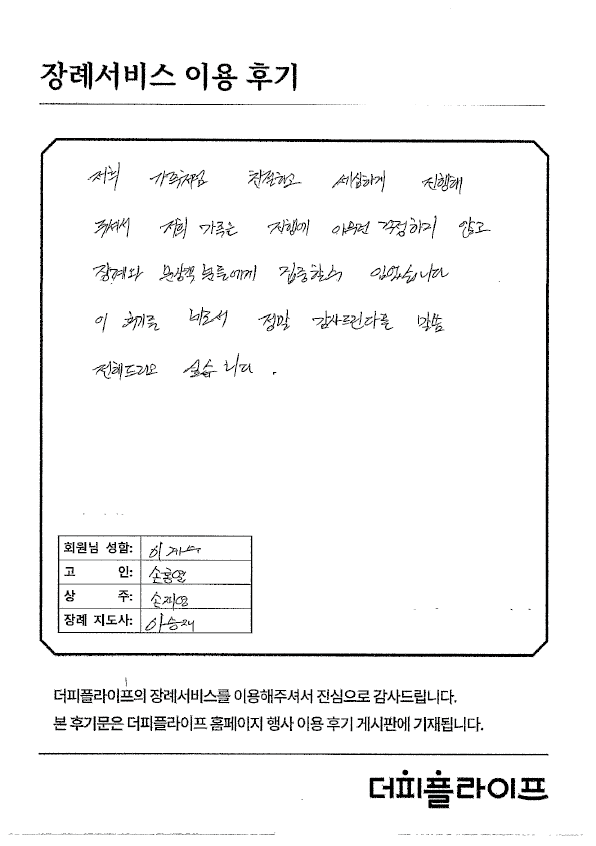 장례서비스 이용 후기
저희 가족처럼 친절하고 세심하게 진행해
주셔서 저희 가족은 진행에 아무런 걱정하지 않고
장례와 문상객 분들에게 집중할수 있었습니다
이 후기를 빌로서 정말 감사드린다는 말씀
전해드리고 싶습니다.
회원님 성함:
고 인: 손홍열
상 주: 손재영
장례 지도사: 이승재
더피플라이프의 장례서비스를 이용해주셔서 진심으로 감사드립니다.
본 후기문은 더피플라이프 홈페이지 행사 이용 후기 게시판에 기재됩니다.
더피플라이프